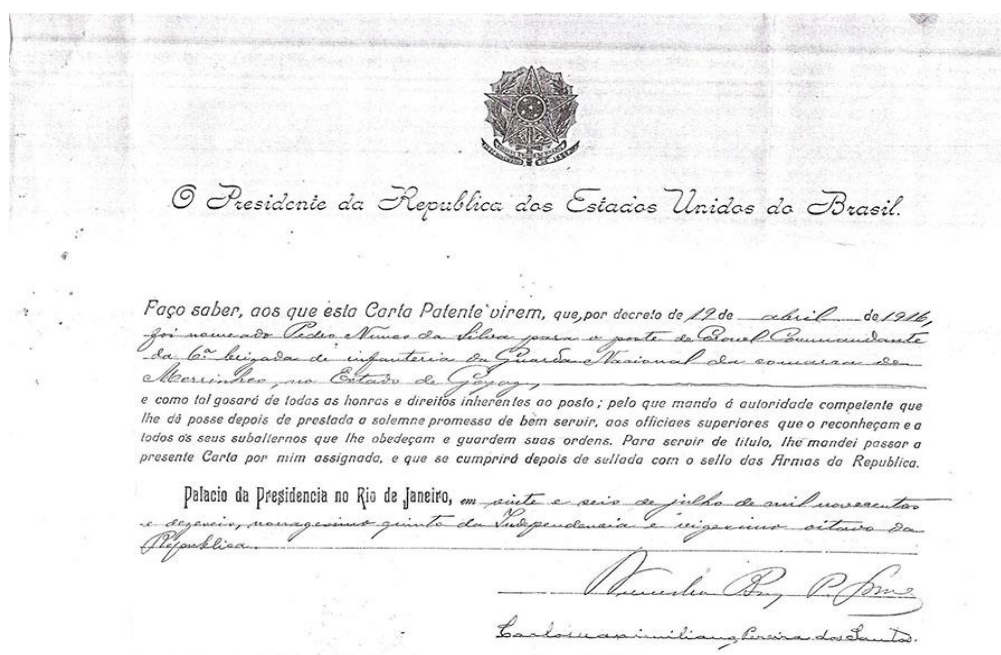 O Presidente da Republica dos Estados Unidos do Brasil.
Faço saber, aos que esta Carta Patente virem, que, por decreto de 12 de abril de 1916,
foi nomeado Pedro Nunes da Silva para o posto de Coronel Commandante
da 6ª brigada de infanteria da Guarda Nacional da comarca de
Morrinhos, no Estado de Goyaz,
e como tal gosará de todas as honras e direitos inherentes ao posto; pelo que mando á autoridade competente que
lhe dê posse depois de prestada a solemne promessa de bem servir, aos officiaes superiores que o reconheçam e a
todos os seus subalternos que lhe obedeçam e guardem suas ordens. Para servir de titulo, lhe mandei passar a
presente Carta por mim assignada, e que se cumprirá depois de sellada com o sello das Armas da Republica.
Palacio da Presidencia no Rio de Janeiro, em vinte e seis de julho de mil novecentos
e dezeseis, nonagesimo quinto da Independencia e vigesimo oitavo da
Republica.
Wenceslau Braz P. Gomes
Carlos Maximiliano Pereira dos Santos.